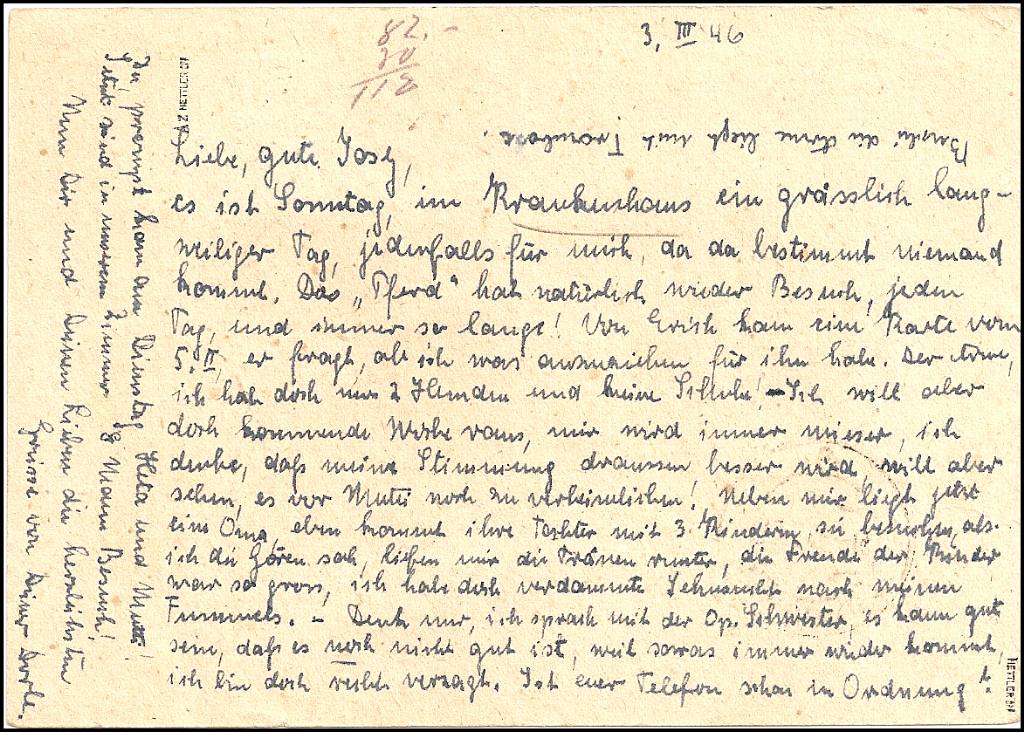 3. III 46
82.-
30
112
Buschi die Arme liegt mit Trombose.
Liebe, gute Josy,
es ist Sonntag, im Krankenhaus ein grässlich lang-
weiliger Tag, jedenfalls für mich, da da bestimmt niemand
kommt. Das „Pferd" hat natürlich wieder Besuch, jeden
Tag, und immer so lange! Von Erich kam eine Karte vom
5. II, er fragt, ob ich was anzuziehen für ihn habe. Der Arme,
ich hab doch nur 2 Hemden und keine Schuhe! - Ich will aber
doch kommende Woche raus, mir wird immer mieser, ich
denke, daß meine Stimmung draussen besser wird, will aber
sehen, es vor Mutti noch zu verheimlichen! Neben mir liegt jetzt
eine Oma, eben kommt ihre Tochter mit 3 Kindern, sie besuchen, als
ich die Gören sah, liefen mir die Tränen runter, die Freude der Kinder
war so gross, ich habe doch verdammte Sehnsucht nach meinen
Fummels. - Denk nur, ich sprach mit der Op. Schwester, es kann gut
sein, daß es noch nicht gut ist, weil sowas immer wieder kommt,
ich bin doch recht verzagt. Ist euer Telefon schon in Ordnung?
Du, prompt kam am Dienstag Heta und Mutti!
7 Stück sind in unserem Zimmer, 8 Mann Besuch!
Nun Dir und Deinen Lieben die herzlichsten
Grüsse von Deiner Dorle.
A Z NETTLER
NETTLER